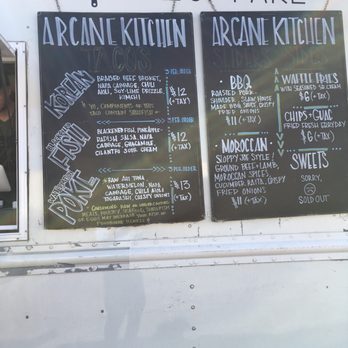 ARCANE KITCHEN
TACOS
KOREAN
3 PER ORDER
BRAISED BEEF BRISKET,
NAPA CABBAGE, CHILI
AIOLI, SOY-LIME DRIZZLE,
KIMCHI
$12
(+TAX)
FISH
3 PER ORDER
BLACKENED FISH, PINEAPPLE-
RADISH SALSA, NAPA
CABBAGE, GUACAMOLE
CILANTRO SOUR CREAM
$12
(+TAX)
POKE
2 PER ORDER
AHI TUNA
WATERMELON, NORI
CABBAGE, CHILI AIOLI
TOGARASHI, CRISPY ONIONS
$13
(+TAX)
ARCANE KITCHEN
BBQ
ROASTED PORK
SHOULDER, SLAW, HOUSE
MADE BBQ SAUCE, CRISPY
FRIED ONIONS
$11 (+TAX)
MOROCCAN
SLOPPY JOE STYLE!
GROUND BEEF + LAMB,
MOROCCAN SPICES,
CUCUMBER RAITA, CRISPY
FRIED ONIONS
$11 (+TAX)
WAFFLE FRIES
W/ SEASONED SR CREAM
$6 (+TAX)
CHIPS + GUAC
FRIED FRESH EVERYDAY
$5 (+TAX)
SWEETS
SORRY,
SOLD OUT